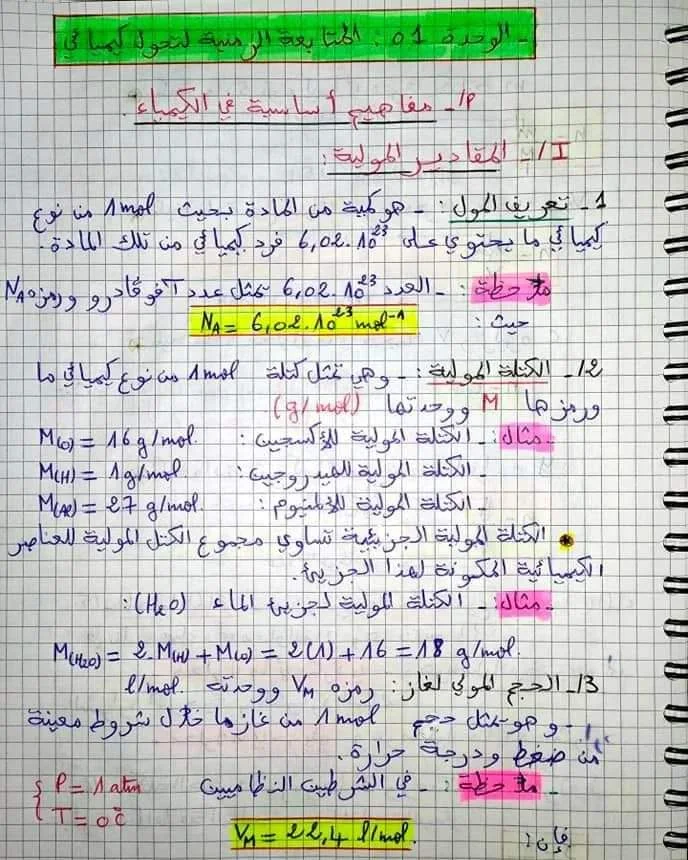 - الوحدة 01: المتابعة الزمنية لتحول كيميائي
P/- مفاهيم أساسية في الكيمياء.
I/- المقادير المولية:
1- تعريف المول: - هو كمية من المادة بحيث 1mol من نوع
كيميائي ما يحتوي على 6,02.10²³ فرد كيميائي من تلك المادة.
ملاحظة: - العدد 6,02.10²³ يمثل عدد آفوقادرو ورمزه NA
حيث: NA = 6,02.10²³ mol⁻¹
2/- الكتلة المولية: - وهي تمثل كتلة 1mol من نوع كيميائي ما
ورمزها M ووحدتها (g/mol).
- مثال: - الكتلة المولية للأكسجين: M(O) = 16 g/mol.
- الكتلة المولية للهيدروجين: M(H) = 1g/mol.
- الكتلة المولية للألمنيوم: M(Al) = 27 g/mol.
• الكتلة المولية الجزيئية تساوي مجموع الكتل المولية للعناصر
الكيميائية المكونة لهذا الجزيئ.
- مثال: - الكتلة المولية لجزيئ الماء (H₂O):
M(H₂O) = 2.M(H) + M(O) = 2(1) + 16 = 18 g/mol.
3/- الحجم المولي لغاز: رمزه VM ووحدته l/mol.
- وهو يمثل حجم 1mol من غاز ما خلال شروط معينة
من ضغط ودرجة حرارة.
- ملاحظة: - في الشرطين النظاميين { P = 1 atm
T = 0°C
فإن: VM = 22,4 l/mol.